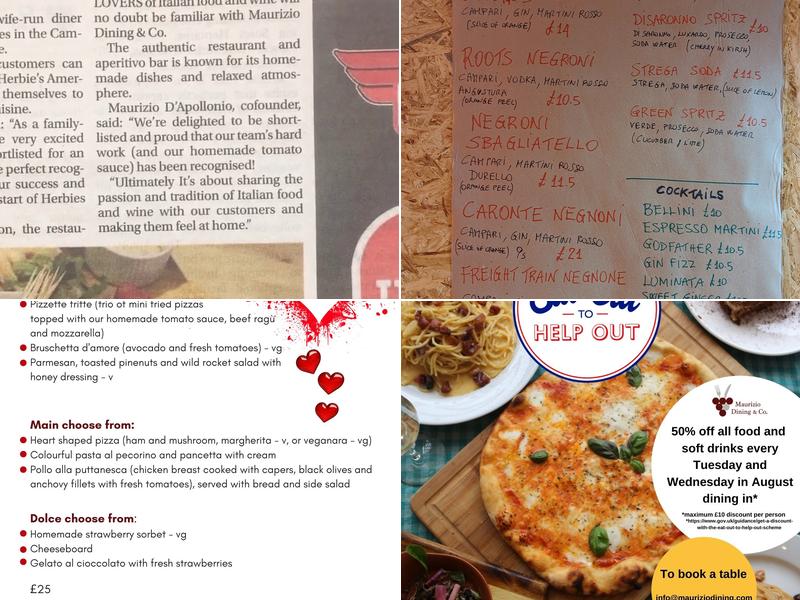 wife-run diner
es in the Cam-
e.
customers can
Herbie's Amer-
themselves to
uisine.
: "As a family-
e very excited
ortlisted for an
e perfect recog-
ur success and
start of Herbies
on, the restau-
LOVERS of Italian food and wine will
no doubt be familiar with Maurizio
Dining & Co.
The authentic restaurant and
aperitivo bar is known for its home-
made dishes and relaxed atmos-
phere.
Maurizio D'Apollonio, cofounder,
said: "We're delighted to be short-
listed and proud that our team's hard
work (and our homemade tomato
sauce) has been recognised!
"Ultimately It's about sharing the
passion and tradition of Italian food
and wine with our customers and
making them feel at home."
CAMPARI, GIN, MARTINI ROSSO
(SLICE OF ORANGE) £14
ROOTS NEGRONI
CAMPARI, VODKA, MARTINI ROSSO
ANGUSTURA
(ORANGE PEEL) £10.5
NEGRONI
SBAGLIATELLO
CAMPARI, MARTINI ROSSO
DURELLO
(ORANGE PEEL) £11.5
CARONTE NEGNONI
CAMPARI, GIN, MARTINI ROSSO
(SLICE OF ORANGE) £21
FREIGHT TRAIN NEGNONE
DISARONNO SPRITZ £10
DISARONNO, LUXARDO, PROSECCO,
SODA WATER (CHERRY IN KIRSH)
STREGA SODA £11.5
STREGA, SODA WATER, (SLICE OF LEMON)
GREEN SPRITZ £10.5
VERDE, PROSECCO, SODA WATER
(CUCUMBER & LIME)
COCKTAILS
BELLINI £10
ESPRESSO MARTINI £11.5
GODFATHER £10.5
GIN FIZZ £10.5
LUMINATA £10
SWEET GINGER
Pizzette fritte (trio of mini fried pizzas
topped with our homemade tomato sauce, beef ragù
and mozzarella)
Bruschetta d'amore (avocado and fresh tomatoes) - vg
Parmesan, toasted pinenuts and wild rocket salad with
honey dressing - v
Main choose from:
Heart shaped pizza (ham and mushroom, margherita - v, or veganara - vg)
Colourful pasta al pecorino and pancetta with cream
Pollo alla puttanesca (chicken breast cooked with capers, black olives and
anchovy fillets with fresh tomatoes), served with bread and side salad
Dolce choose from:
Homemade strawberry sorbet - vg
Cheeseboard
Gelato al cioccolato with fresh strawberries
£25
TO
HELP OUT
Maurizio
Dining & Co.
50% off all food and
soft drinks every
Tuesday and
Wednesday in August
dining in*
*maximum £10 discount per person
*https://www.gov.uk/guidance/get-a-discount-
with-the-eat-out-to-help-out-scheme
To book a table
info@mauriziodining.com